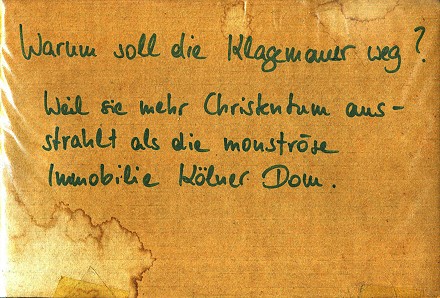 Warum soll die Klagemauer weg?
Weil sie mehr Christentum aus-
strahlt als die monströse
Immobilie Kölner Dom.